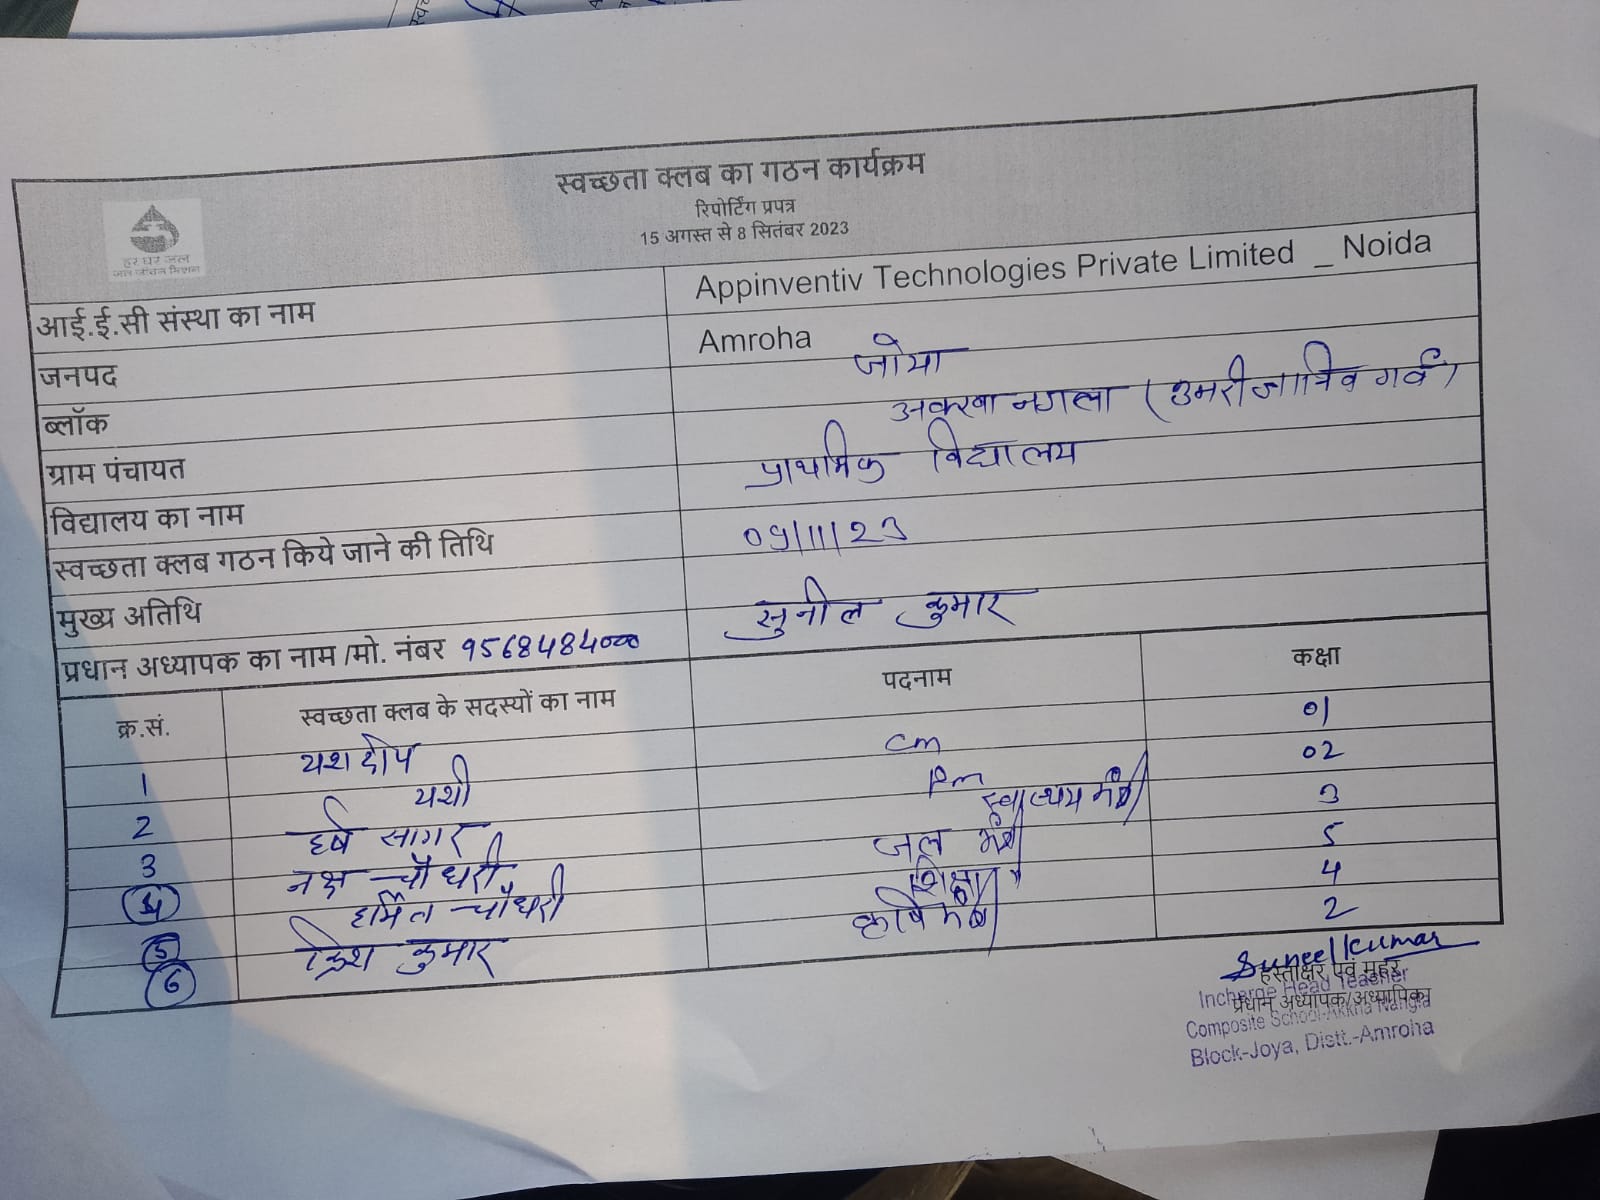 स्वच्छता क्लब का गठन कार्यक्रम
रिपोर्टिंग प्रपत्र
15 अगस्त से 8 सितंबर 2023
हर घर जल
जल जीवन मिशन
आई.ई.सी संस्था का नाम Appinventiv Technologies Private Limited _ Noida
जनपद Amroha
ब्लॉक जोया
ग्राम पंचायत अकखा नगला (उमरी
विद्यालय का नाम प्राथमिक विद्यालय
स्वच्छता क्लब गठन किये जाने की तिथि 09/11/23
मुख्य अतिथि
प्रधान अध्यापक का नाम /मो. नंबर 9568484000 सुनील कुमार
क्र.सं. स्वच्छता क्लब के सदस्यों का नाम पदनाम कक्षा
1 यशदीप cm 01
2 यशी Pm 02
3 हर्ष सागर 3
4 नक्ष चौधरी जल मंत्री 5
5 हर्मित चौधरी शिक्षा 4
6 कुमार कृषि मंत्री 2
Suneel Kumar
हस्ताक्षर एवं मुहर
प्रधान अध्यापक/अध्यापिका
Incharge Head Teacher
Composite School-Akkha Nangla
Block-Joya, Distt.-Amroha